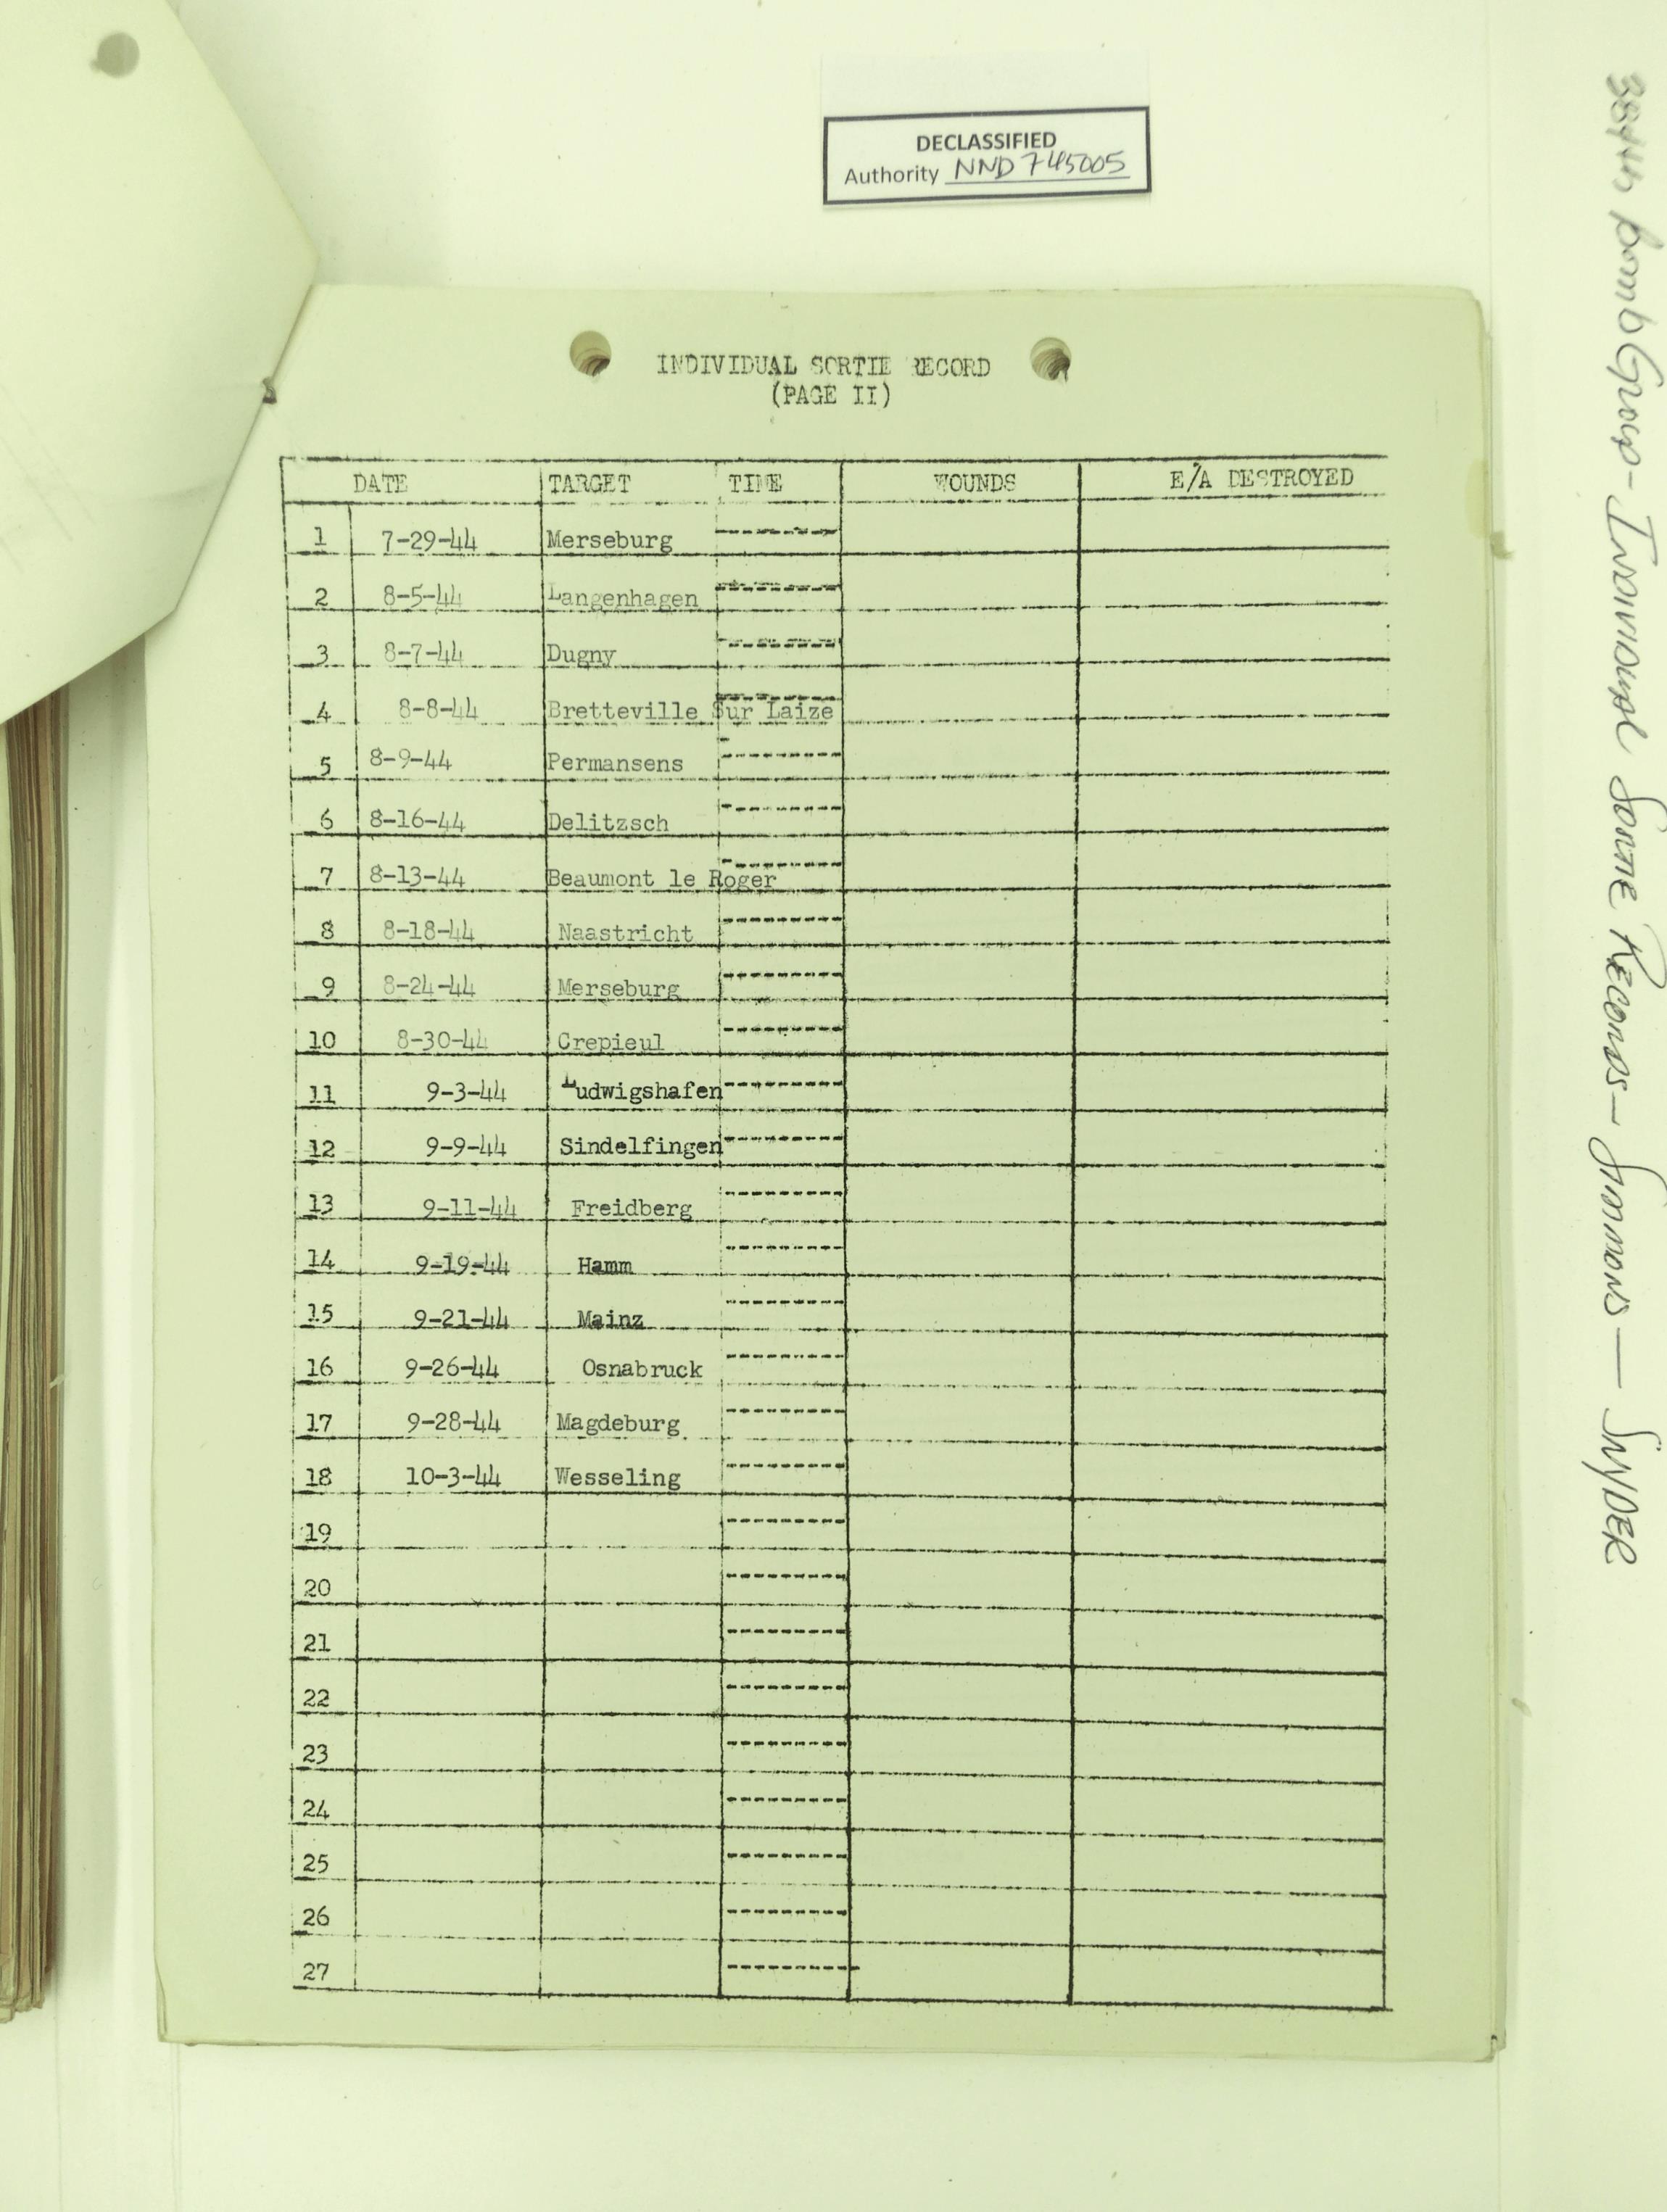 DECLASSIFIED
Authority NND 745005
INDIVIDUAL SORTIE RECORD
(PAGE II)
DATE TARGET TIME WOUNDS E/A DESTROYED
1 7-29-44 Merseburg ---------
2 8-5-44 Langenhagen ---------
3 8-7-44 Dugny ---------
4 8-8-44 Bretteville Sur Laize ---------
5 8-9-44 Permansens ---------
6 8-16-44 Delitzsch ---------
7 8-13-44 Beaumont le Roger ---------
8 8-18-44 Naastricht ---------
9 8-24-44 Merseburg ---------
10 8-30-44 Crepieul ---------
11 9-3-44 Ludwigshafen ---------
12 9-9-44 Sindelfingen ---------
13 9-11-44 Freidberg ---------
14 9-19-44 Hamm ---------
15 9-21-44 Mainz ---------
16 9-26-44 Osnabruck ---------
17 9-28-44 Magdeburg ---------
18 10-3-44 Wesseling ---------
19 ---------
20 ---------
21 ---------
22 ---------
23 ---------
24 ---------
25 ---------
26 ---------
27 ----------
384th Bomb Group - Individual Sortie Records - Simmons - Snyder